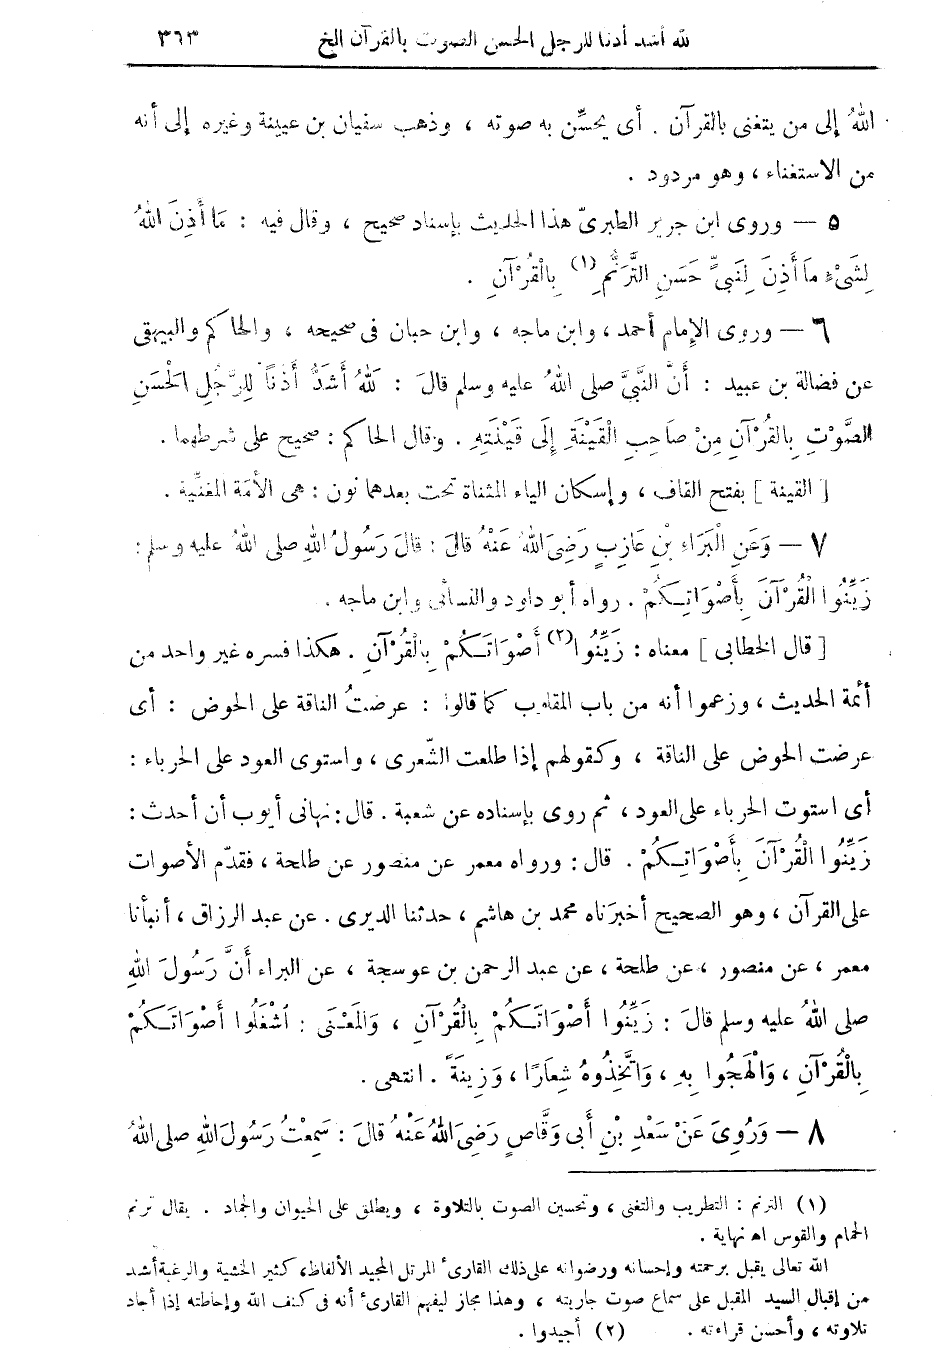 لله أشد أذنا للرجل الحسن الصوت بالقرآن الخ ٣٦٣
اللهُ إلى من يتغنى بالقرآن . أى يحسِّن به صوته ، وذهب سفيان بن عيينة وغيره إلى أنه
من الاستغناء ، وهو مردود .
٥ — وروى ابن جرير الطبرىّ هذا الحديث بإسناد صحيح ، وقال فيه : مَا أَذِنَ اللهُ
لِشَىْءٍ مَا أَذِنَ لِنَبىٍّ حَسَنِ التَّرَنُّمِ (١) بِالْقُرْآنِ .
٦ — وروى الإمام أحمد ، وابن ماجه ، وابن حبان فى صحيحه ، والحاكم والبيهقى
عن فضالة بن عبيد : أَنَّ النَّبىَّ صلى اللهُ عليه وسلم قالَ : لَلّهُ أَشَدُّ أَذَنًا لِلرَّجُلِ الْحَسَنِ
الصَّوْتِ بِالْقُرْآنِ مِنْ صَاحِبِ الْقَيْنَةِ إِلَى قَيْنَتِهِ . وقال الحاكم : صحيح على شرطهما .
[ القينة ] بفتح القاف ، وإسكان الياء المثناة تحت بعدهما نون : هى الأمَة المغنِّية .
٧ — وَعَنِ الْبَرَاءِ بْنِ عَازِبٍ رَضِىَ اللهُ عَنْهُ قالَ : قالَ رَسُولُ اللهِ صلى اللهُ عليه وسلم :
زَيِّنُوا الْقُرْآنَ بِأَصْوَاتِكُمْ . رواه أبو داود والنسائى وابن ماجه .
[ قال الخطابى ] معناه : زَيِّنُوا (٢) أَصْوَاتَكُمْ بِالْقُرْآنِ . هكذا فسره غير واحد من
أئمة الحديث ، وزعموا أنه من باب المقلوب كما قالوا : عرضتُ الناقة على الحوض : أى
عرضت الحوض على الناقة ، وكقولهم إذا طلعت الشّعرى ، واستوى العود على الحرباء :
أى استوت الحرباء على العود ، ثم روى بإسناده عن شعبة . قال : نهانى أيوب أن أحدث :
زَيِّنُوا الْقُرْآنَ بِأَصْوَاتِكُمْ . قال : ورواه معمر عن منصور عن طلحة ، فقدّم الأصوات
على القرآن ، وهو الصحيح أخبرَناه محمد بن هاشم ، حدثنا الديرى . عن عبد الرزاق ، أنبأنا
معمر ، عن منصور ، عن طلحة ، عن عبد الرحمن بن عوسجة ، عن البراء أَنَّ رَسُولَ اللهِ
صلى اللهُ عليه وسلم قالَ : زَيِّنُوا أَصْوَاتَكُمْ بِالْقُرْآنِ ، وَالمَعْنَى : اشْغَلُوا أَصْوَاتَكُمْ
بِالْقُرْآنِ ، وَالْهَجُوا بِهِ ، وَاتَّخِذُوهُ شِعَارًا ، وَزِينَةً . انتهى .
٨ — وَرُوِىَ عَنْ سَعْدِ بْنِ أَبى وَقَّاصٍ رَضِىَ اللهُ عَنْهُ قالَ : سَمِعْتُ رَسُولَ اللهِ صلى اللهُ
(١) الترنم : التطريب والتغنى ، وتحسين الصوت بالتلاوة ، ويطلق على الحيوان والجماد . يقال ترنم
الحمام والقوس اه نهاية .
الله تعالى يقبل برحمته وإحسانه ورضوانه على ذلك القارئ المرتل المجيد الألفاظ ، كثير الخشية والرغبة أشد
من إقبال السيد المقبل على سماع صوت جاريته ، وهذا مجاز ليفهم القارئ أنه فى كنف الله وإحاطته إذا أجاد
تلاوته ، وأحسن قراءته . (٢) أجيدوا .